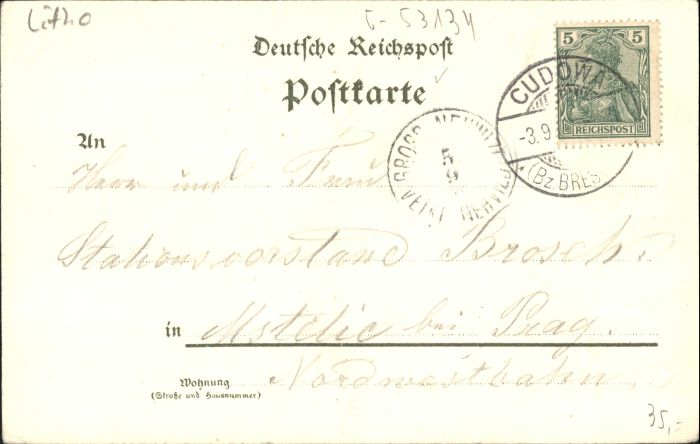 Litho
5-53134
Deutsche Reichspost
Postkarte
5 5
REICHSPOST
CUDOWA
-3.9
(Bz. BRES
GROSS NEHWIZD
5
9
VELKÝ NEHVIZD
An
Herr und Frau
Stationsvorstand Brosch.
in Mstetic bei Prag.
Wohnung
(Straße und Hausnummer)
Nordwestbahn.
35,-